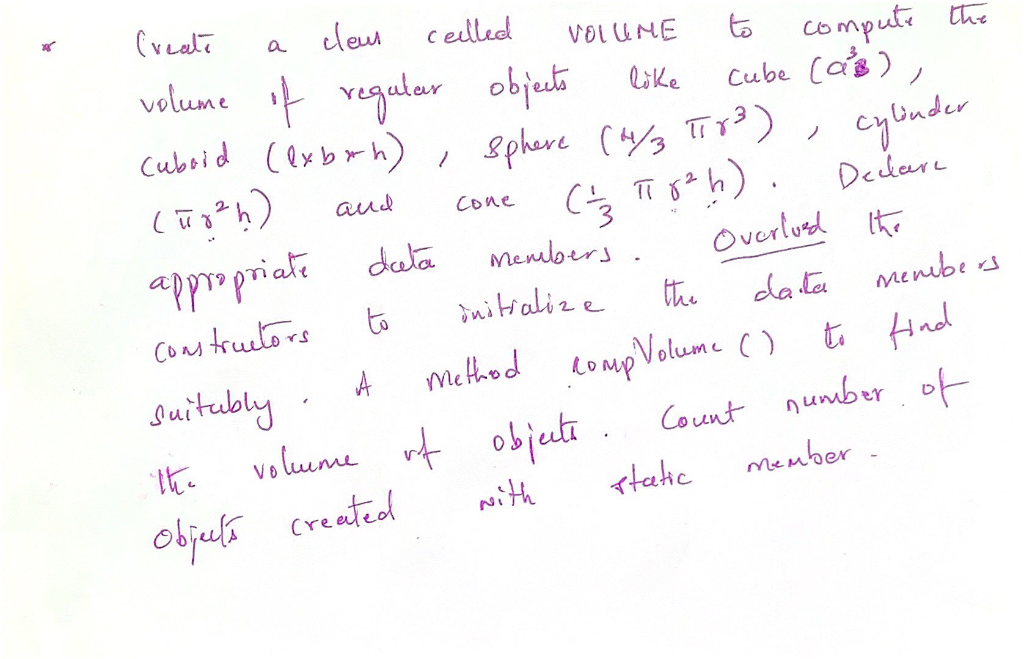 * Create a class called VOLUME to compute the
volume of regular objects like cube (a³),
cuboid (l×b×h), sphere (4/3 πr³), cylinder
(πr²h) and cone (1/3 πr²h). Declare
appropriate data members. Overload the
constructors to initialize the data members
suitably. A method compVolume() to find
the volume of objects. Count number of
objects created with static member.